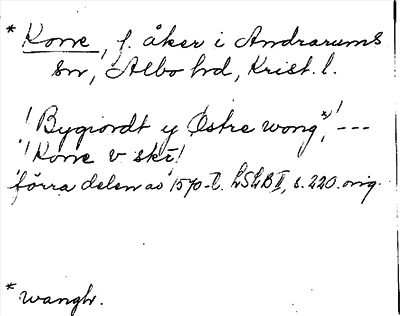 * Korre, f. åker i Andrarums
sn, Albo hd, Krist. l.
! Bygiordt y Østre wong*),! ---
! Korre v ski!
förra delen av 1570-t. LSLB II, s. 220. orig.
* wangh.